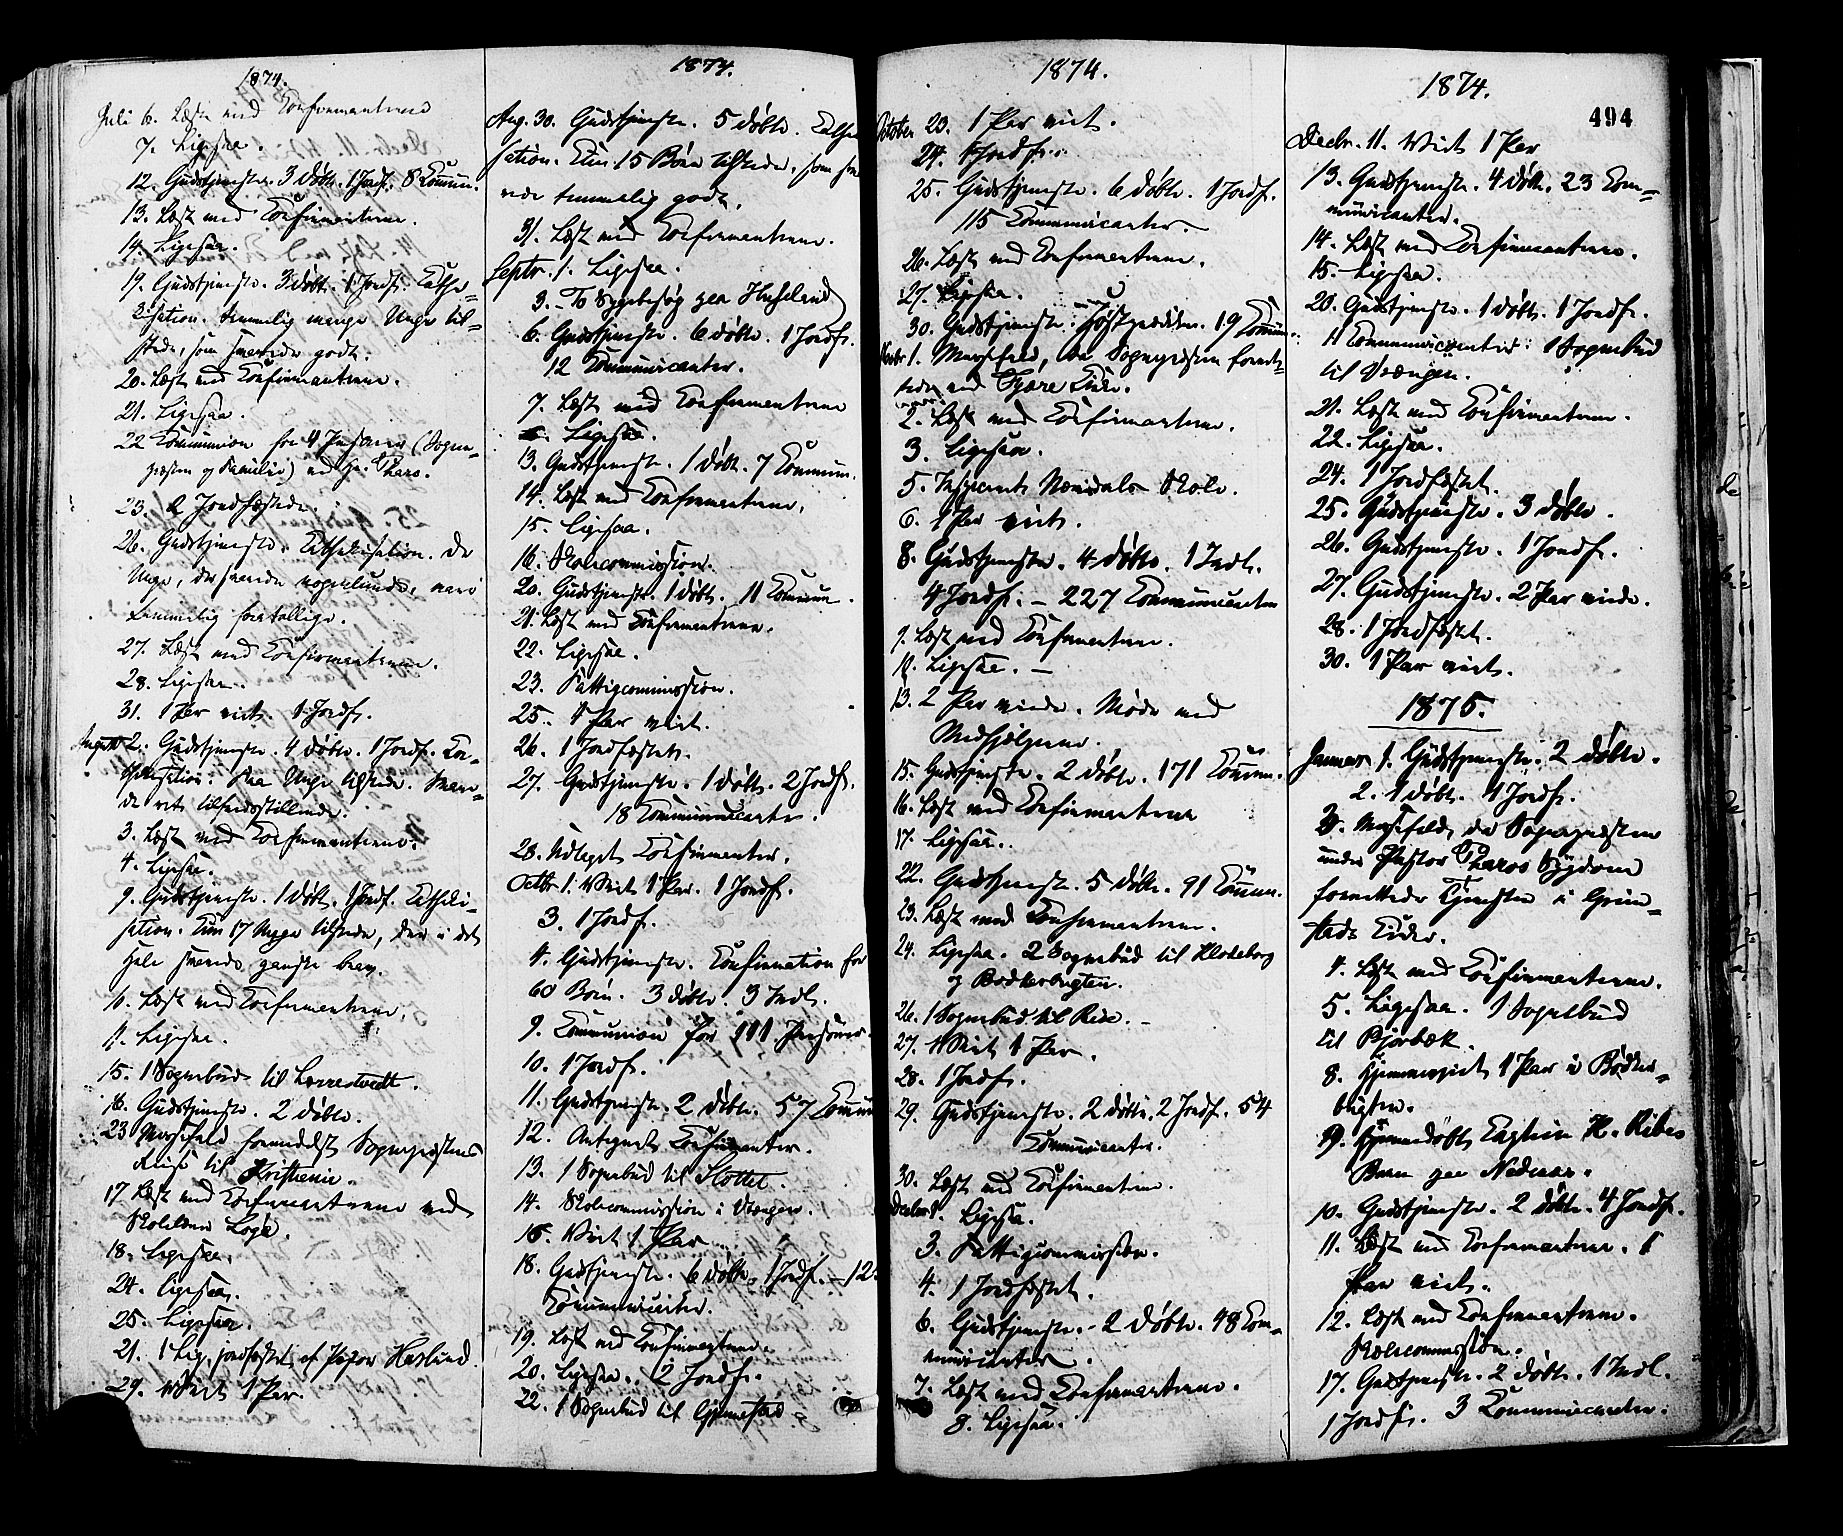 1874.
Juli 6. Læst med Confirmanterne
7. Ligesaa.
12. Gudstjeneste. 3 døbte. 1 Jordf. 8 Commun.
13. Læst med Confirmanterne.
14. Ligesaa.
19. Gudstjeneste. 3 døbt. 1 Jordf. Cathe-
kisation. temmelig mange Unge til-
stede, som svarede godt.
20. Læst med Confirmanterne.
21. Ligesaa.
22 Communion for 4 Personer (Sogne-
præsten og Familie) ved Hr. Tharo.
23. 2 Jordfæstede.
26. Gudstjeneste. Cathekisation. De
Unge, der svarede nogenlunde, vare
temmelig fortallige.
27. Læst med Confirmanterne.
28. Ligesaa.
31. 1 Par viet. 1 Jordf.
August 2. Gudstjeneste. 4 døbte. 1 Jordf. Ca-
thekisation. Faa Unge tilstede. Svare-
de ret tilfredsstillende.
3. Læst med Confirmanterne.
4. Ligesaa.
9. Gudstjeneste. 1 døbt. 1 Jordf. Catheki-
sation. Kun 17 Unge tilstede, der i det
Hele svarede ganske brav.
10. Læst med Confirmanterne.
11. Ligesaa.
15. 1 Sognebud til Lorrestvedt.
16. Gudstjeneste. 2 døbte.
23 Messefald formedelst Sognepræstens
Reise til Kristiania.
17. Læst med Confirmanterne ved
Skolelærer Loga.
18. Ligesaa.
24. Ligesaa.
25. Ligesaa.
21. 1 Lig jordfæstet af Pastor Haslund.
29. Viet 1 Par.
1874.
Aug. 30. Gudstjeneste. 5 døbte. Catheki-
sation. Kun 15 Børn tilstede, som sva-
rede temmelig godt.
31. Læst med Confirmanterne.
Septr. 1. Ligesaa.
3. To Sygebesøg paa
6. Gudstjeneste. 6 døbte. 1 Jordf.
12 Communicanter.
7. Læst med Confirmanterne
8. Ligesaa.
13. Gudstjeneste. 1 døbt. 7 Commun.
14. Læst med Confirmanterne.
15. Ligesaa.
16. Skolecommission.
20. Gudstjeneste. 1 døbt. 11 Commun.
21. Læst med Confirmanterne.
22. Ligesaa.
23. Fattigcommission.
25. 1 Par viet.
26. 1 Jordfæstet.
27. Gudstjeneste. 1 døbt. 2 Jordf.
18 Communicanter.
28. Udlagt Confirmanter.
Octbr. 1. Viet 1 Par. 1 Jordf.
3. 1 Jordf.
4. Gudstjeneste. Confirmation for
60 Børn. 3 døbte. 3 Indl.
9. Communion for 111 Personer.
10. 1 Jordf.
11. Gudstjeneste. 2 døbte. 57 Commun
12. Antegnet Confirmanter.
13. 1 Sognebud til Slottet.
14. Skolecommission i Vrængen.
16. Viet 1 Par
18. Gudstjeneste. 6 døbte. 1 Jordf. - 12
Communicanter.
19. Læst med Confirmanterne.
20. Ligesaa. 2 Jordf.
22. 1 Sognebud til Gjennestad
1874.
October 23. 1 Par viet.
24. 1 Jordf.
25. Gudstjeneste. 6 døbte. 1 Jordf.
115 Communicanter.
26. Læst med Confirmanterne.
27. Ligesaa.
30. Gudstjeneste. 19 Commun.
Novbr 1. Messefald, da Sognepræsten forret-
tede ved Fjære Kirke.
2. Læst med Confirmanterne.
3. Ligesaa.
5. Inspiceret Skole.
6. 1 Par viet.
8. Gudstjeneste. 4 døbte. 1 Indl.
4 Jordf. - 227 Communicanter
9. Læst med Confirmanterne.
11. Ligesaa. -
13. 2 Par viede. Møde med
Medhjælperne.
15. Gudstjeneste. 2 døbte. 171 Commun.
16. Læst med Confirmanterne
17. Ligesaa.
22. Gudstjeneste. 5 døbte. 91 Commun.
23. Læst med Confirmanterne.
24. Ligesaa. 2 Sognebud til Klodeborg
og Bødkerbugten.
26. 1 Sognebud til Rise. -
27. Viet 1 Par.
28. 1 Jordf.
29. Gudstjeneste. 2 døbte. 2 Jordf. 54
Communicanter.
30. Læst med Confirmanterne.
Decbr 1. Ligesaa.
3. Fattigcommission.
4. 1 Jordfæstet.
6. Gudstjeneste. - 2 døbte. 48 Com-
municanter.
7. Læst med Confirmanterne.
8. Ligesaa.
1874.
494
Decbr. 11. Viet 1 Par
13. Gudstjeneste. 4 døbte. 23 Com-
municanter.
14. Læst med Confirmanterne.
15. Ligesaa.
20. Gudstjeneste. 1 døbt. 1 Jordf.
11 Communicanter. 1 Sognebud
til Vrængen.
21. Læst med Confirmanterne.
22. Ligesaa.
24. 1 Jordfæstet.
25. Gudstjeneste. 3 døbte.
26. Gudstjeneste. 1 Jordf.
27. Gudstjeneste. 2 Par viede.
28. 1 Jordfæstet.
30. 1 Par viet.
1875.
Januar 1. Gudstjeneste. 2 døbte.
2. 1 døbt. 1 Jordf.
3. Messefald, da Sognepræsten
under Pastor Tharos Sygdom
forrettede Tjenesten i Grim-
stads Kirke.
4. Læst med Confirmanterne.
5. Ligesaa. 1 Sognebud
til Bjorbæk.
8. Hjemmeviet 1 Par i Bødker-
bugten.
9. Hjemmedøbt Captein K. Ribes
Barn paa Nedenæs.
10. Gudstjeneste. 2 døbte. 4 Jordf.
11. Læst med Confirmanterne. 1
Par viet.
12. Læst med Confirmanterne.
Skolecommission.
17. Gudstjeneste. 2 døbte. 1 Indl.
1 Jordf. 3 Communicanter.